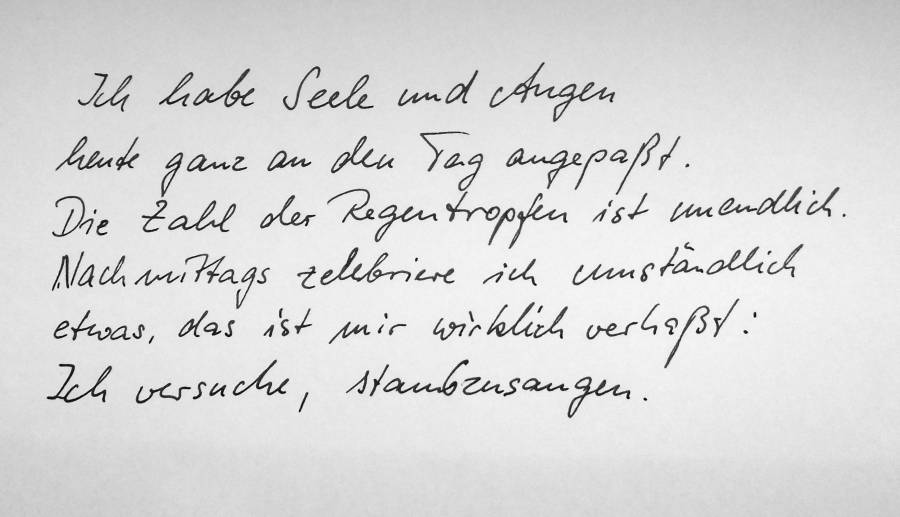 Ich habe Seele und Augen
heute ganz an den Tag angepaßt.
Die Zahl der Regentropfen ist unendlich.
Nachmittags zelebriere ich umständlich
etwas, das ist mir wirklich verhaßt:
Ich versuche, staubzusaugen.